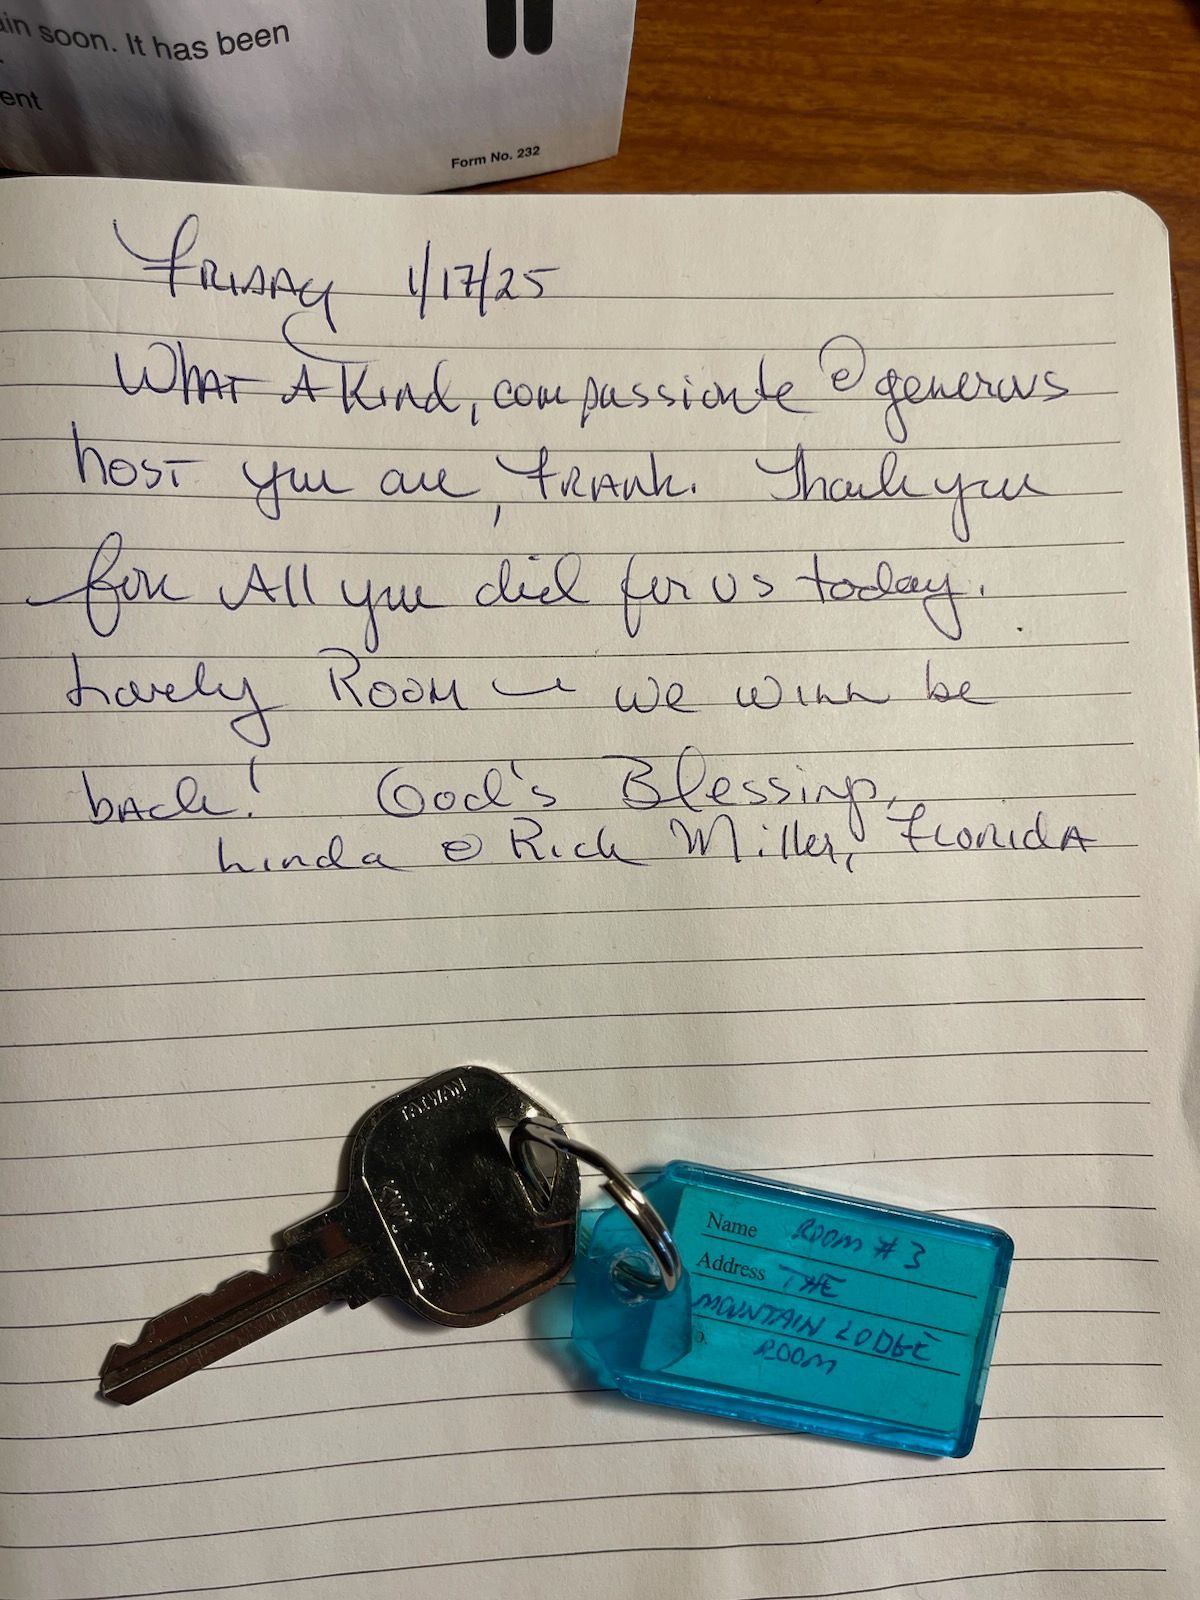 ain soon. It has been
ent
Form No. 232
Friday 1/17/25
What A Kind, compassionate & generous
host you are, Frank. Thank you
for All you did for us today.
Lovely Room ~ we will be
back! God's Blessings,
Linda & Rick Miller, Florida
TAIWAN
KW1
Name ROOM #3
Address THE
MOUNTAIN LODGE
o. ROOM